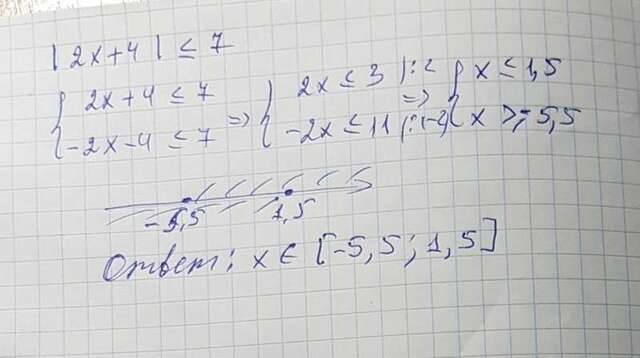 |2x+4| ≤ 7
{ 2x+4 ≤ 7 => { 2x ≤ 3 |:2 => { x ≤ 1,5
{ -2x-4 ≤ 7 { -2x ≤ 11 |:(-2) { x ≥ -5,5
-5,5 1,5
Ответ: x ∈ [-5,5; 1,5]